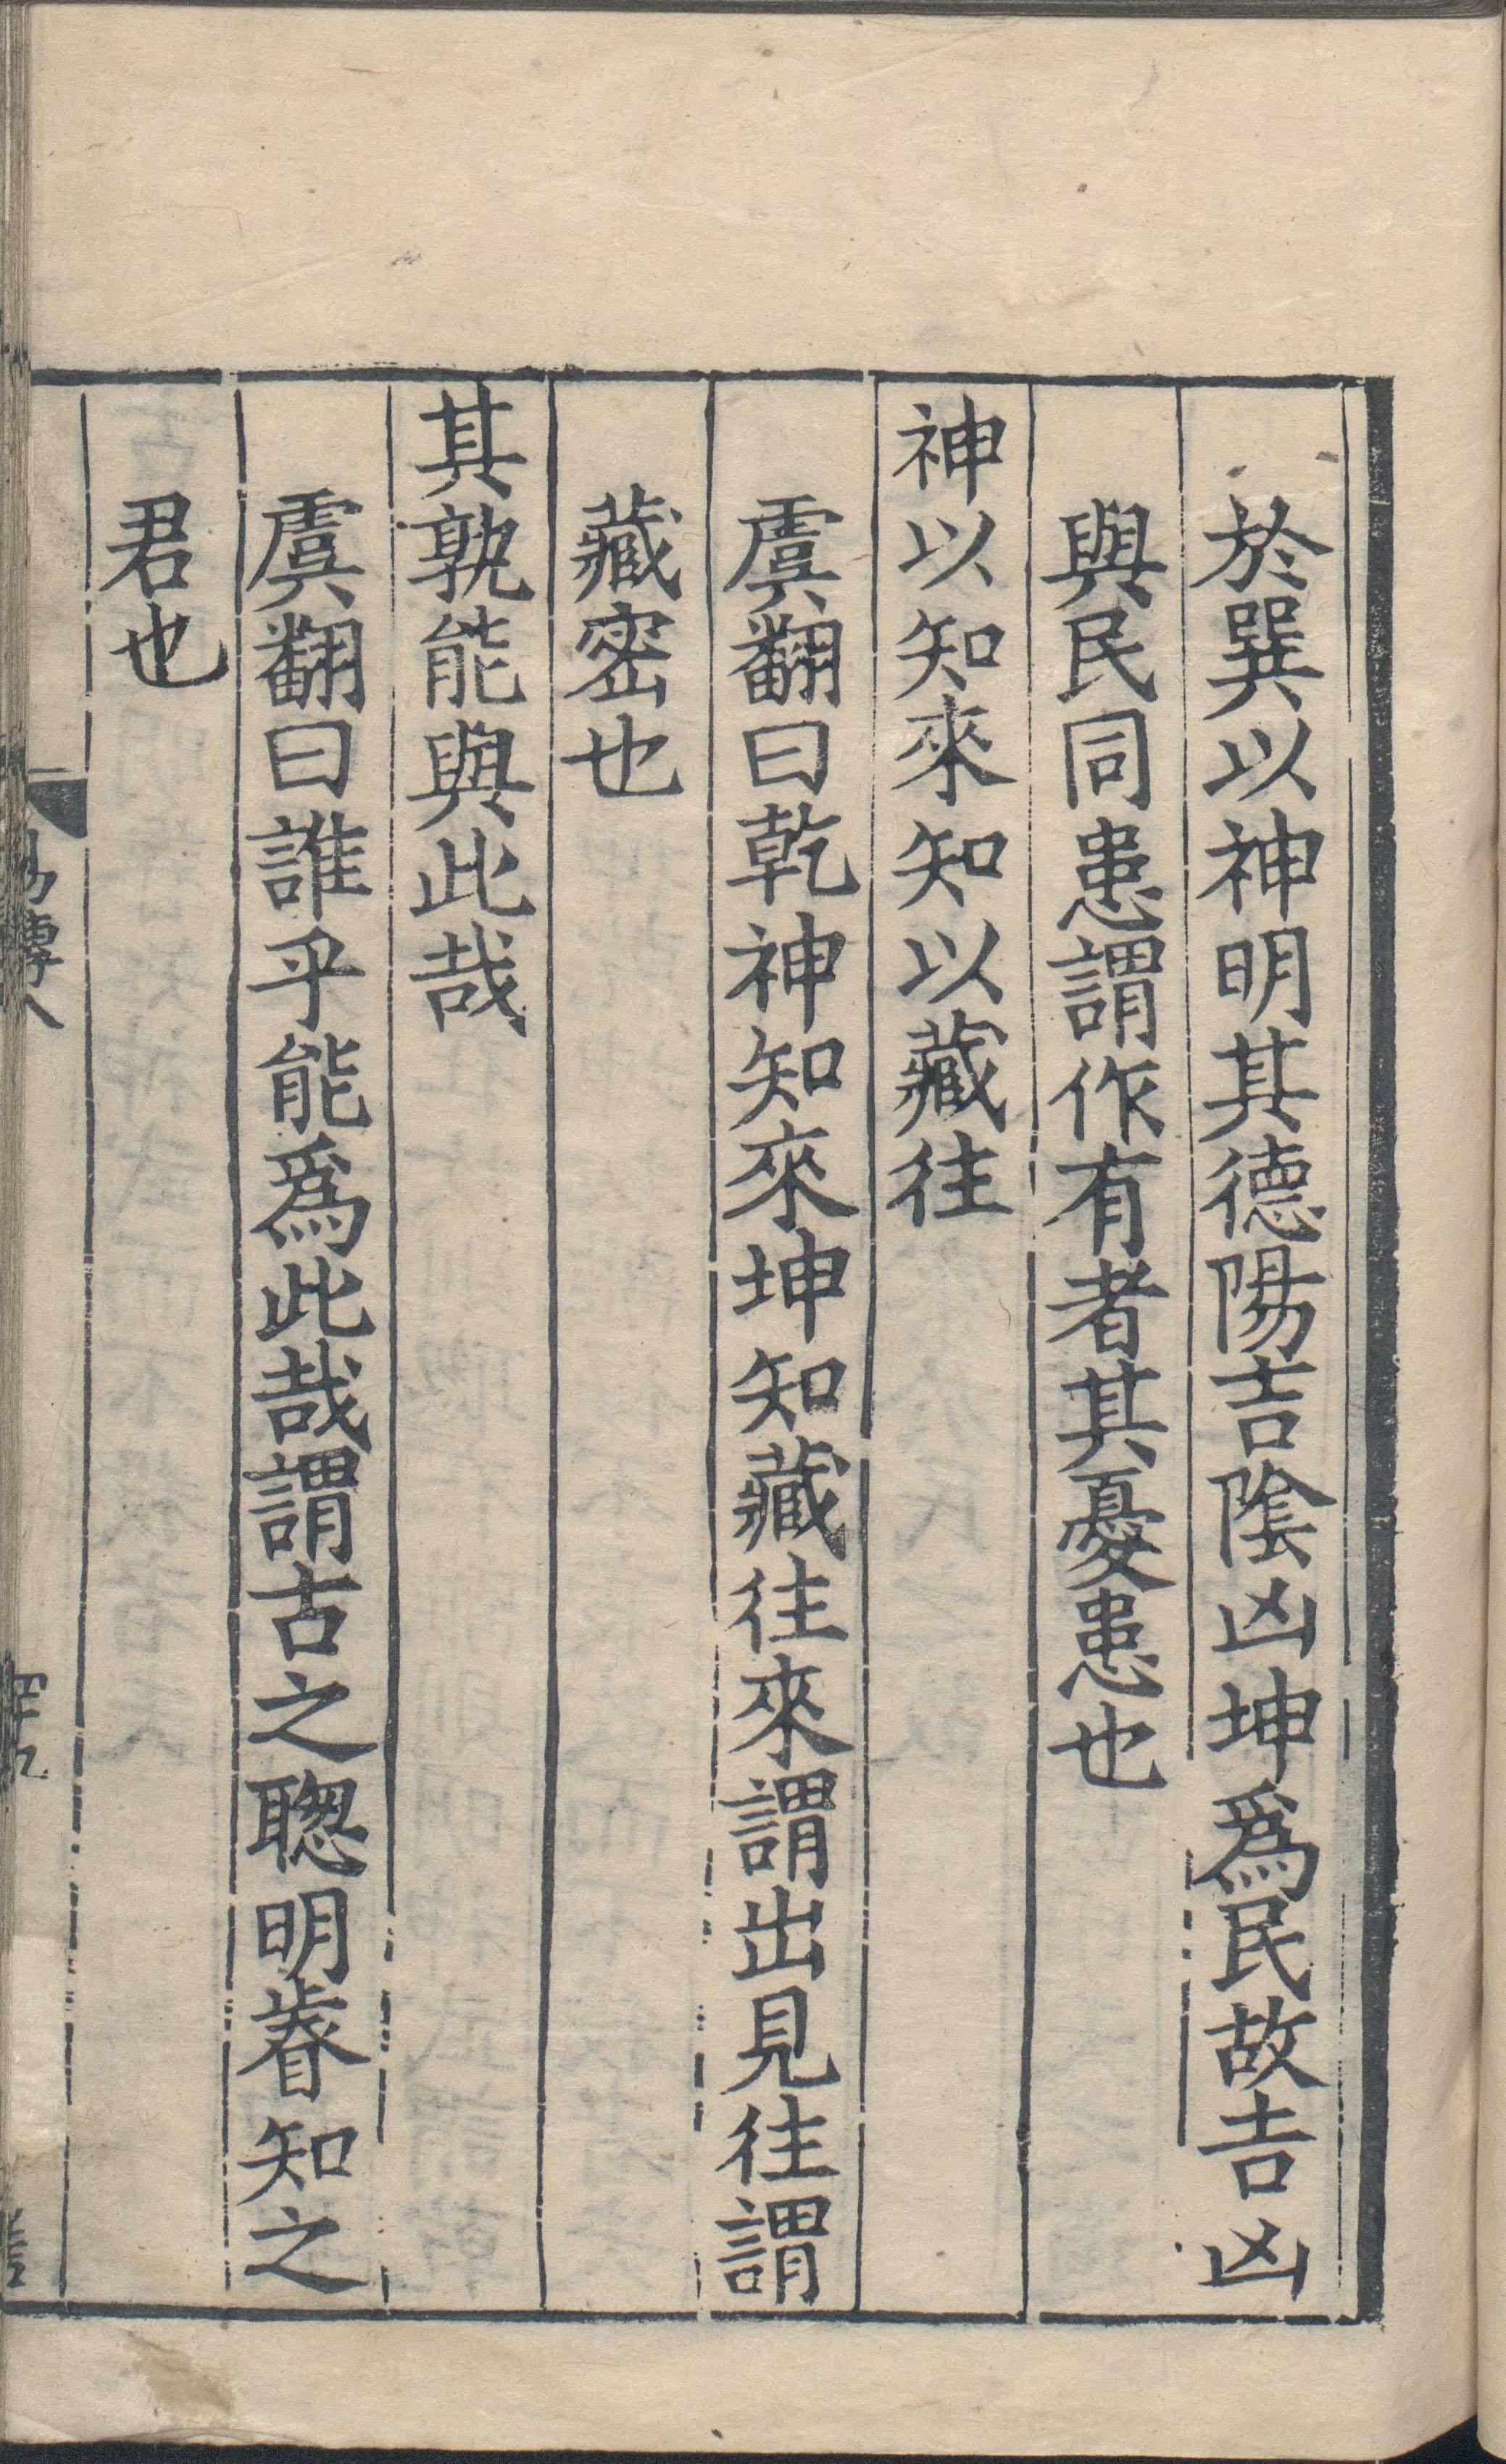 於巽以神明其德陽吉隂凶坤爲民故吉凶
與民同患謂作有者其憂患也
神以知來知以藏往
虞翻曰乾神知來坤知藏往來謂出見往謂
藏宻也
其孰能與此哉
虞翻曰誰乎能爲此哉謂古之聦明睿知之
君也